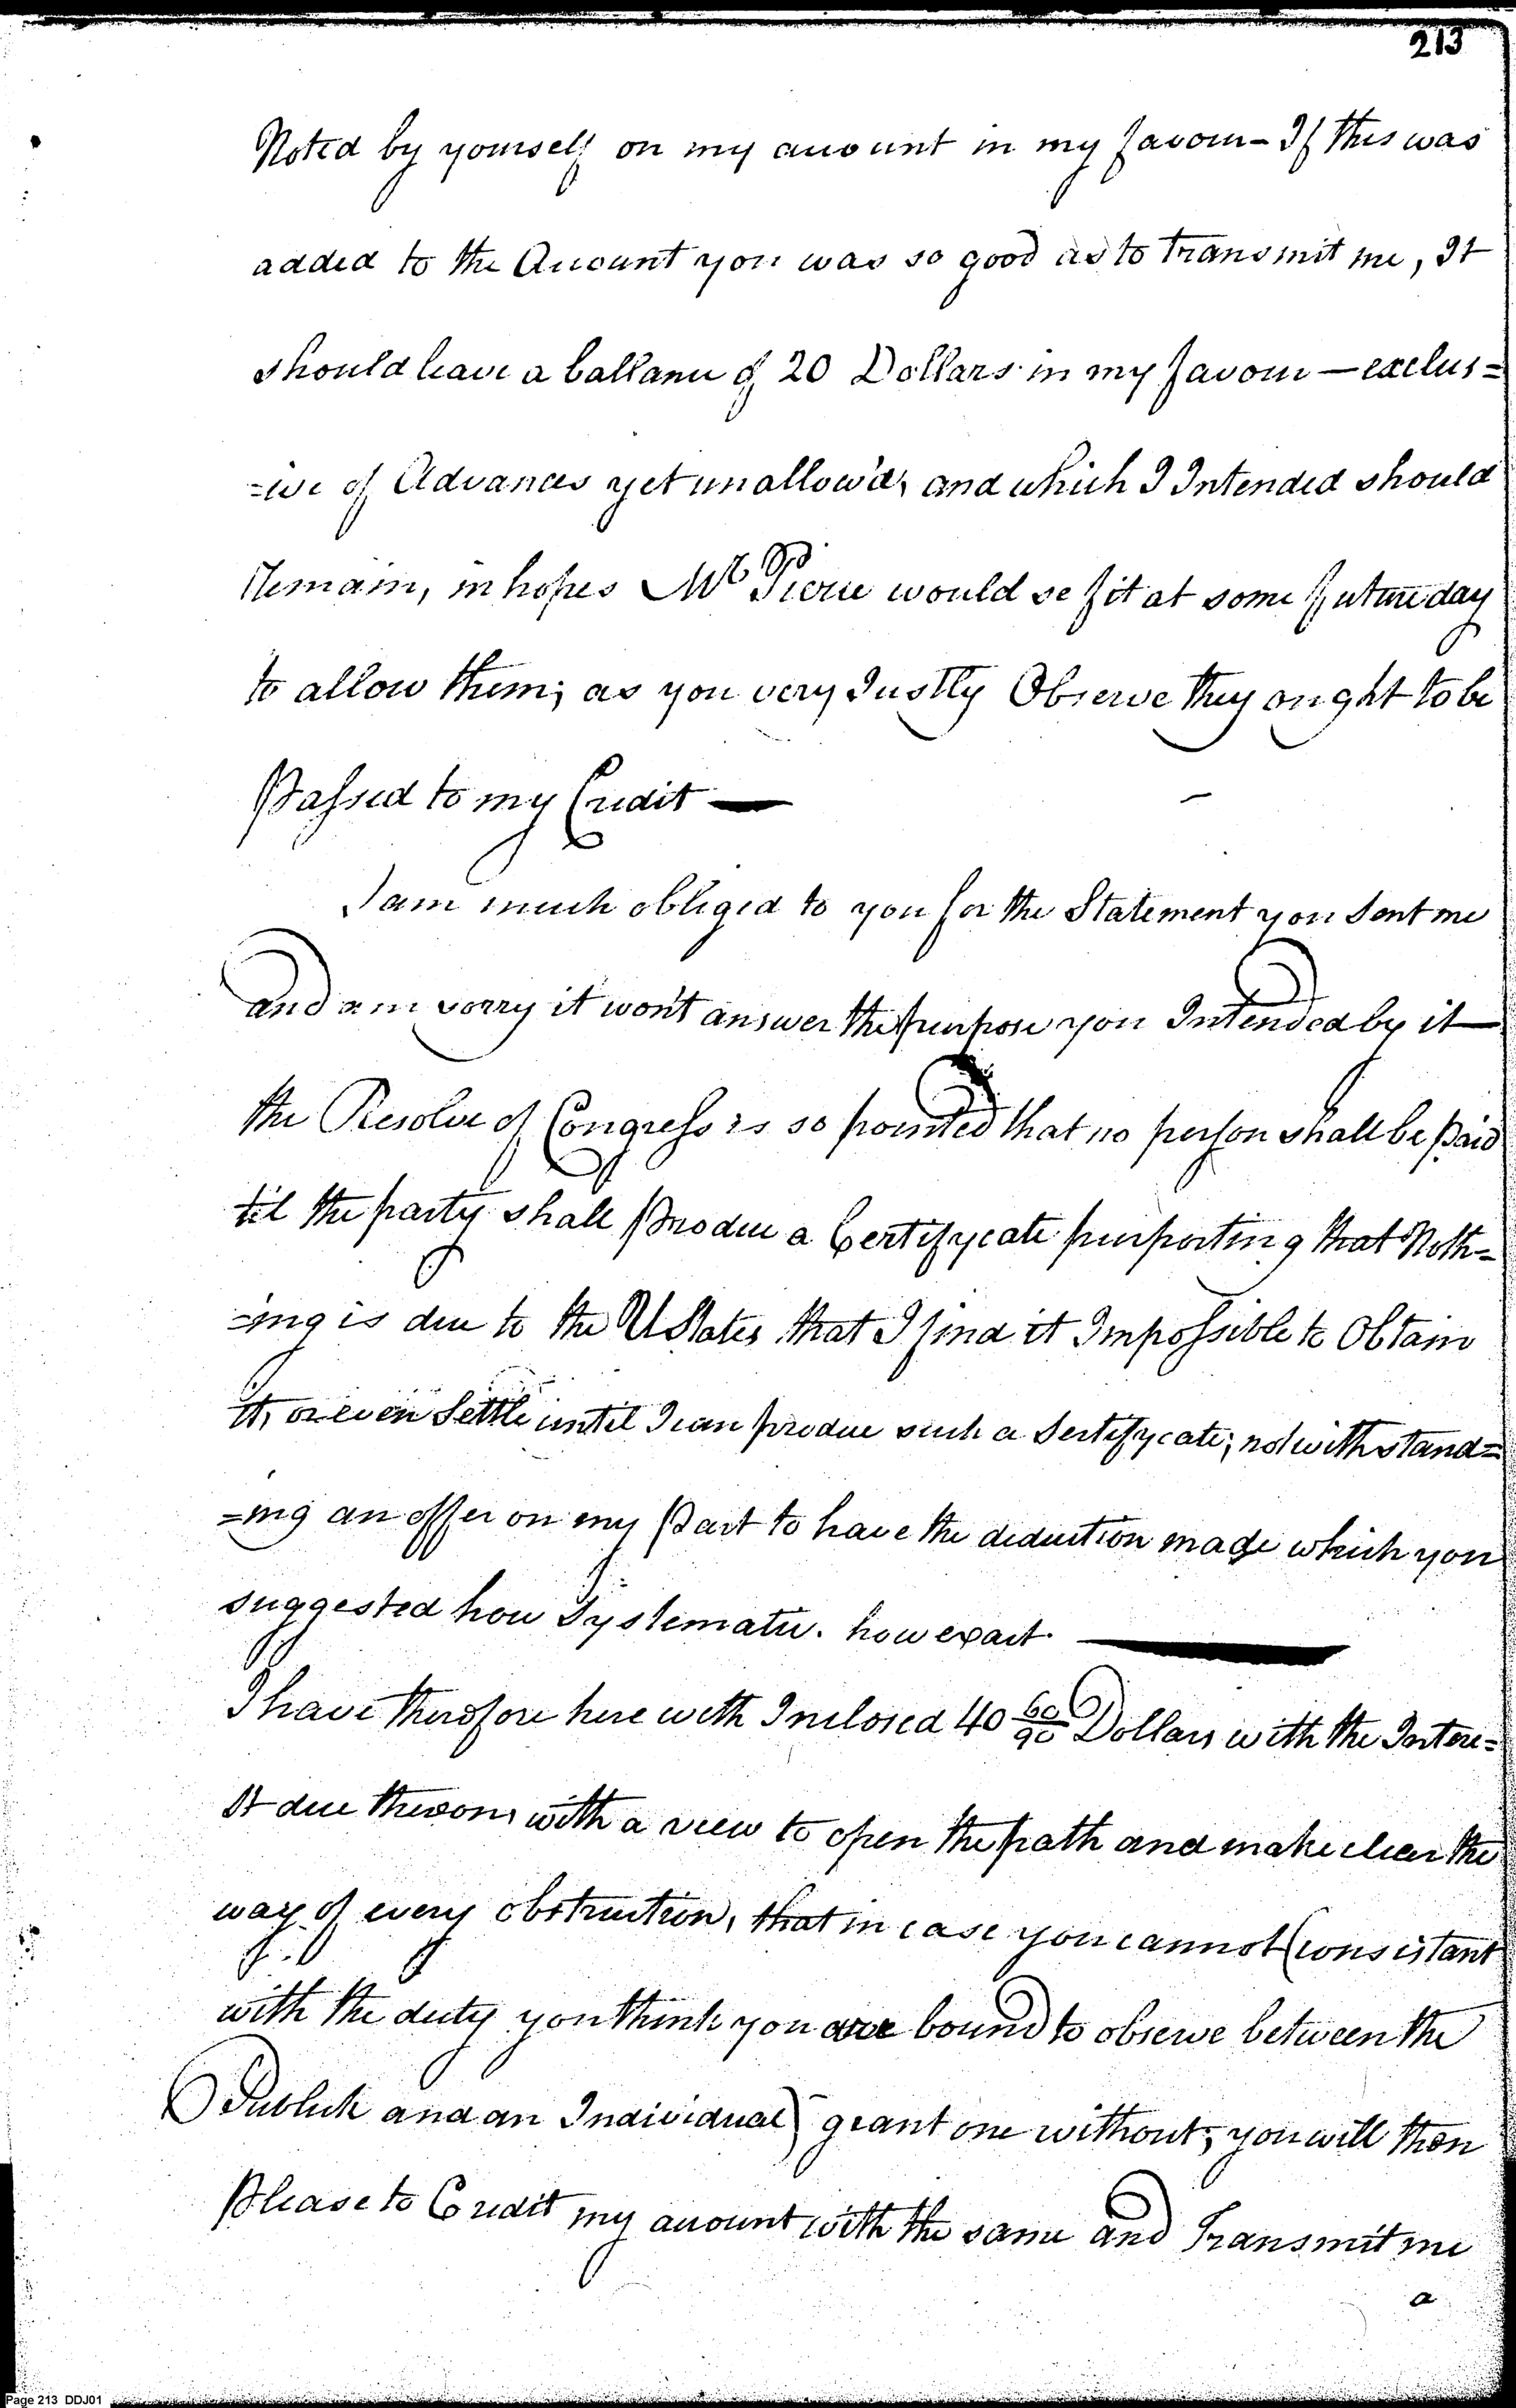 213
Noted by yourself on my account in my favour - If this was
added to the Account you was so good as to transmit me, It
should leave a ballance of 20 Dollars in my favour — exclus=
=ive of Advances yet unallow'd, and which I Intended should
Remain, in hopes Mr Pierce would se fit at some future day
to allow them; as you very Justly Observe they ought to be
Passed to my Credit —
I am much obliged to you for the Statement you Sent me
and am sorry it won't answer the purpose you Intended by it —
the Resolve of Congress is so pointed that no person shall be paid
til the party shall produce a Certifycate purporting that Noth=
=ing is due to the U States that I find it Impossible to Obtain
it, or even Settle until I can produce such a Sertifycate; notwithstand=
=ing an offer on my Part to have the deduction made which you
suggested how Systematic. how exact. —
I have therefore here with Inclosed 40 60/90 Dollars with the Intere=
st due thereon, with a view to open the path and make clear the
way of every obstruction, that in case you cannot (consistant
with the duty you think you are bound to observe between the
Publick and an Individual) grant one without; you will then
Please to Credit my account with the same and Transmit me
a
Page 213 DDJ01